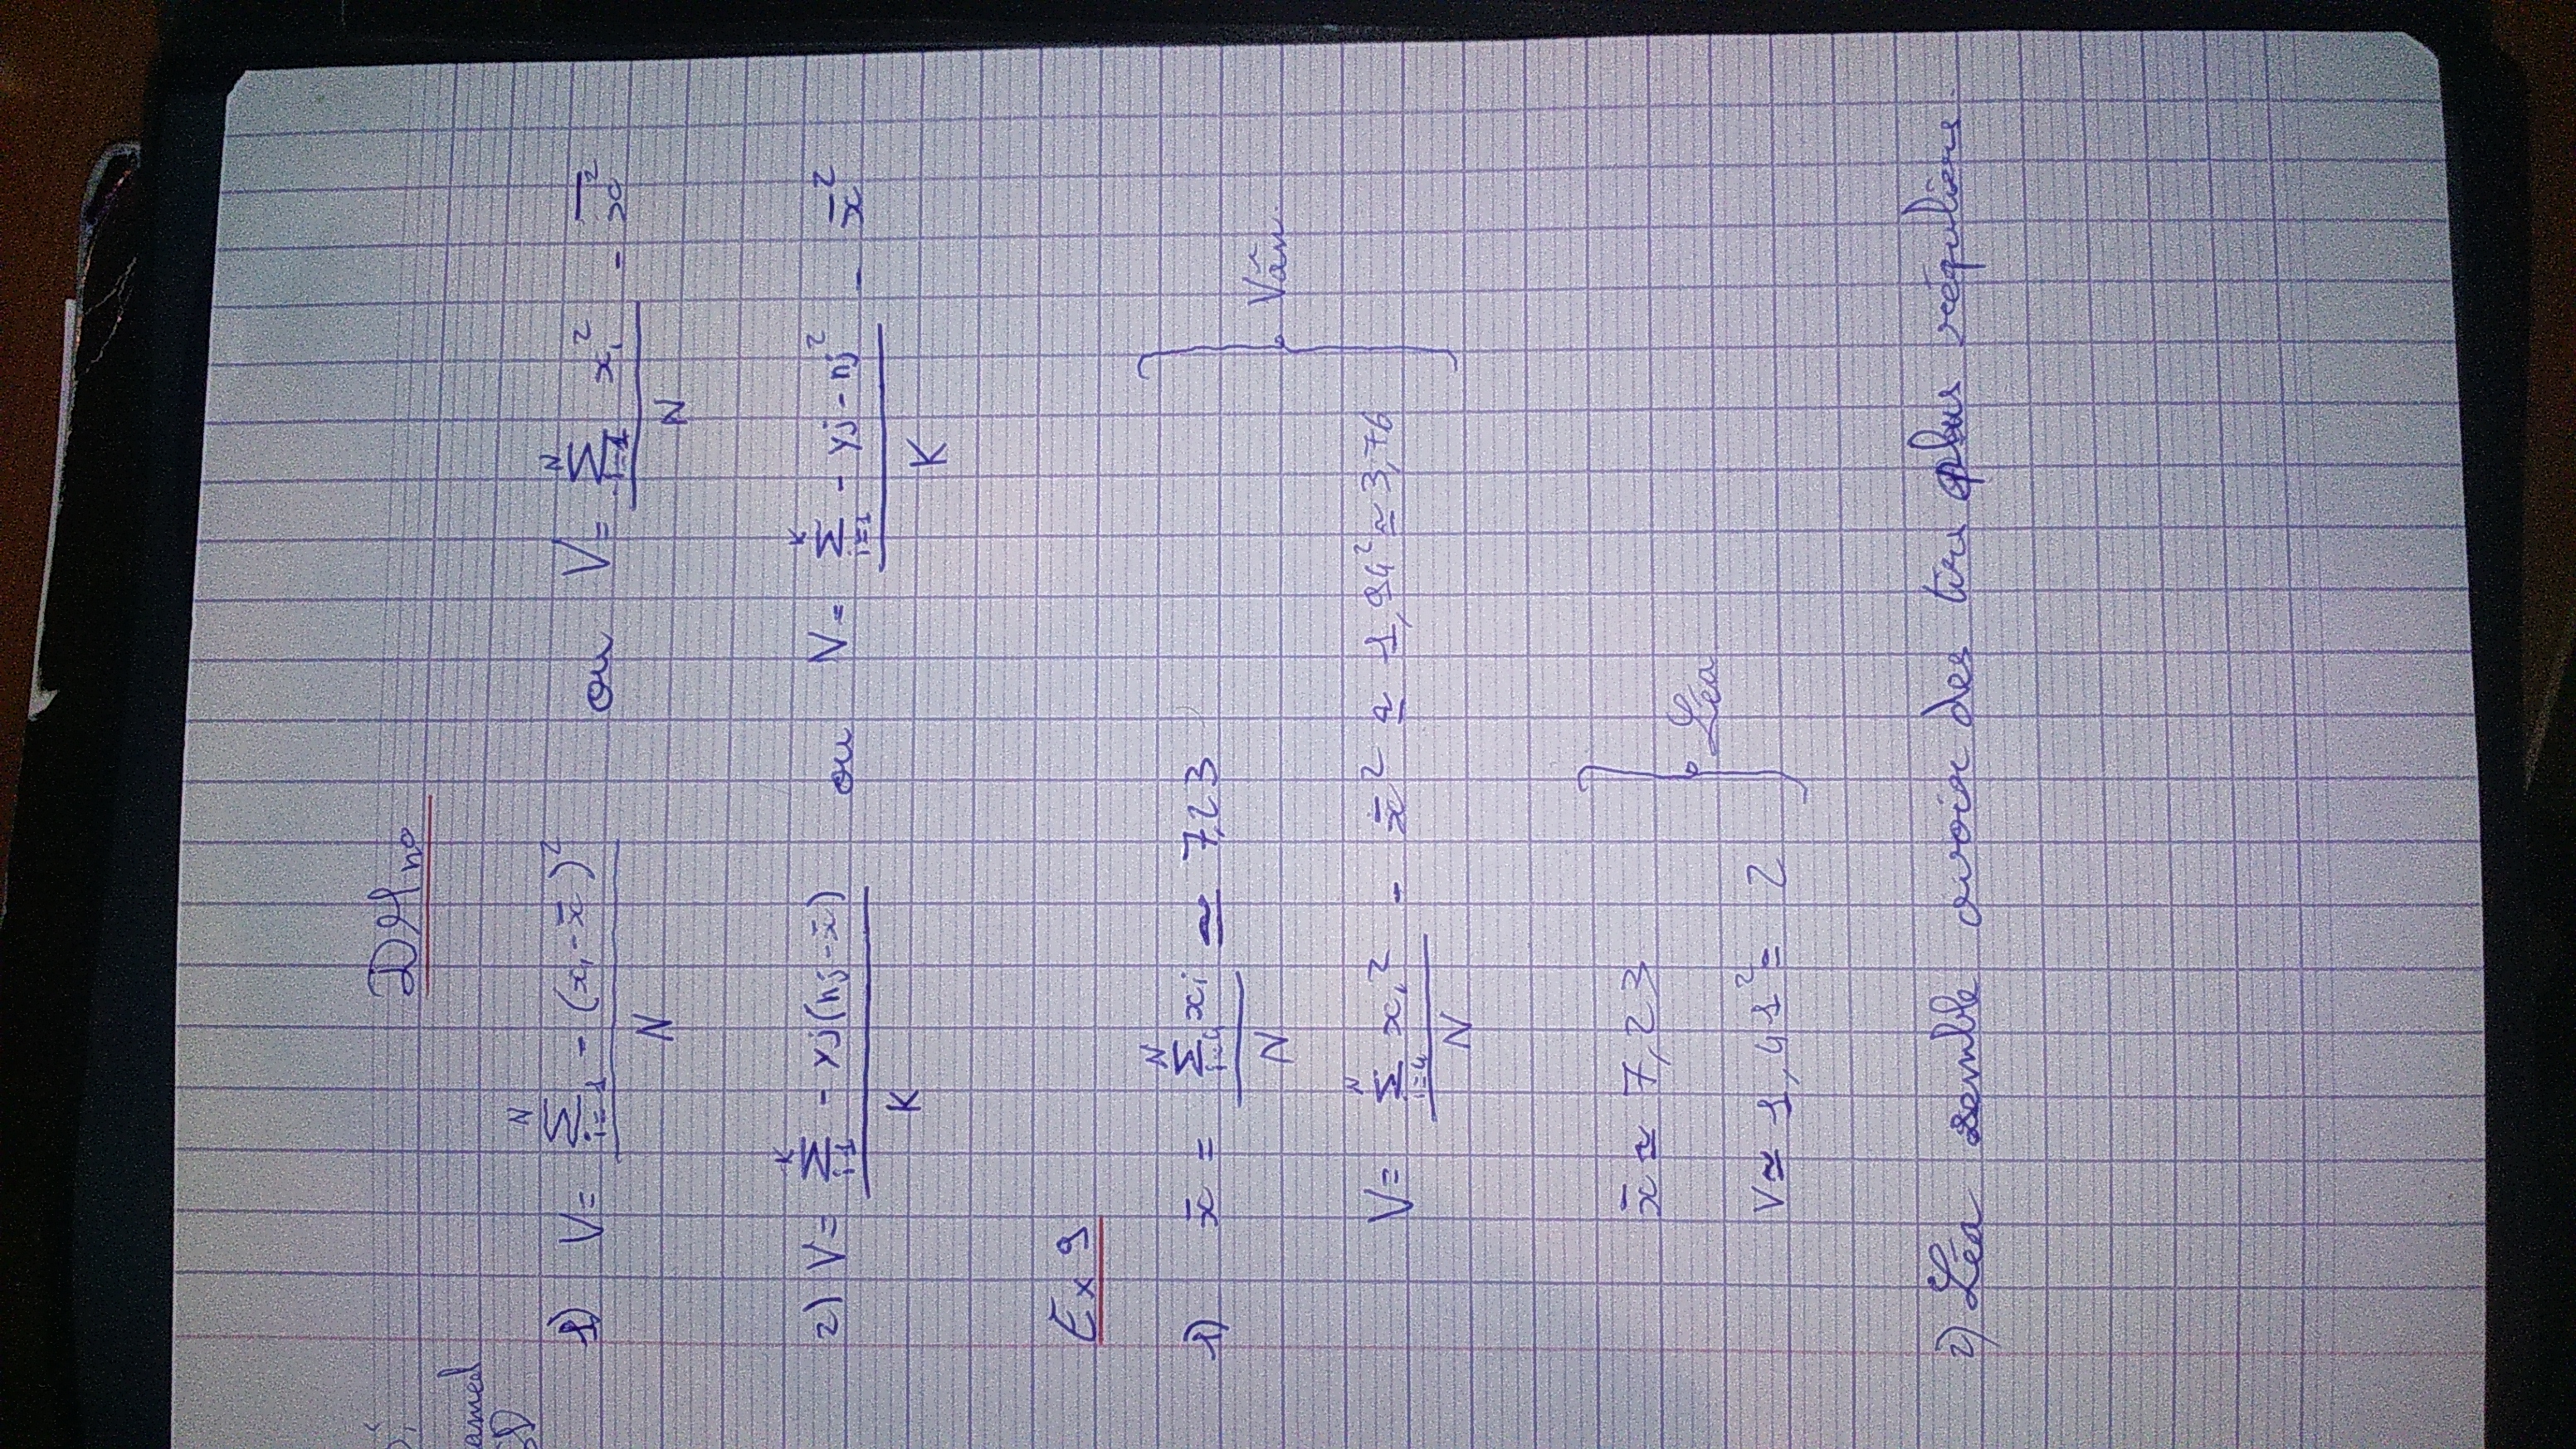 DM no
amed
1) V = ∑ᴺ i=1 - (xi - x̄)² / N ou V = ∑ᴺ i=1 xi² / N - x̄²
2) V = ∑ᴷ i=1 - yj(nj - x̄) / K ou V = ∑ᴷ i=1 - yj - nj² / K - x̄²
Ex 9
1) x̄ = ∑ᴺ xi / N ≃ 7,23
Vân
V = ∑ᴺ xi² / N - x̄² ≃ 1,94² ≃ 3,76
x̄ ≃ 7,23
Léa
V ≃ 1,41² = 2
2) Léa semble avoir des tirs plus réguliers.